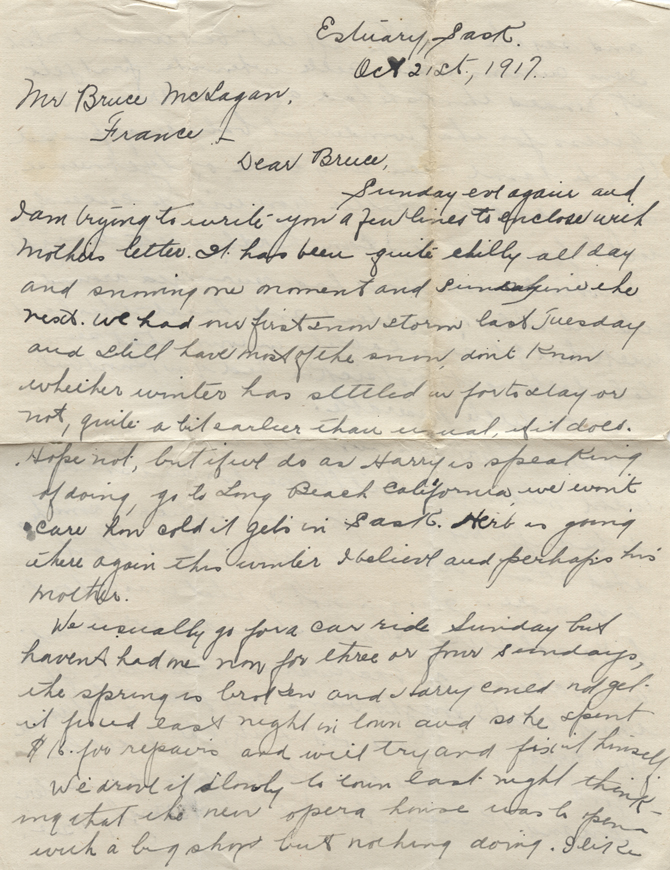 Estuary, Sask.
Oct 21st, 1917.
Mr Bruce McLagan,
France -
Dear Bruce,
Sunday eve again and
I am trying to write you a few lines to enclose with
Mothers letter. It has been quite chilly all day
and snowing one moment and sunshine the
next. We had our first snow storm last Tuesday
and still have most of the snow, don't know
whether winter has settled in for to stay or
not, quite a bit earlier than usual, if it does.
Hope not, but if we do as Harry is speaking
of doing, go to Long Beach California, we won't
care how cold it gets in Sask. Herb is going
there again this winter I believe and perhaps his
mother.
We usually go for a car ride Sunday but
havent had one now for three or four Sundays,
the spring is broken and Harry could not get
it fixed last night in town and so he spent
for repairs and will try and fix it himself.
We drove it slowly to town last night think-
ing that the new opera house was to open
with a big show but nothing doing. I like